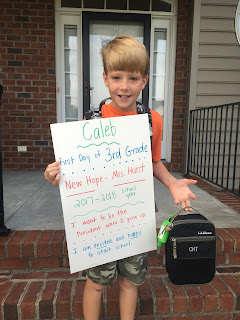 Caleb
First Day of 3rd Grade
New Hope - Mrs. Hunt
2017-2018 school year
I want to be the
President when I grow up
I am excited and happy
to start school.
CHT